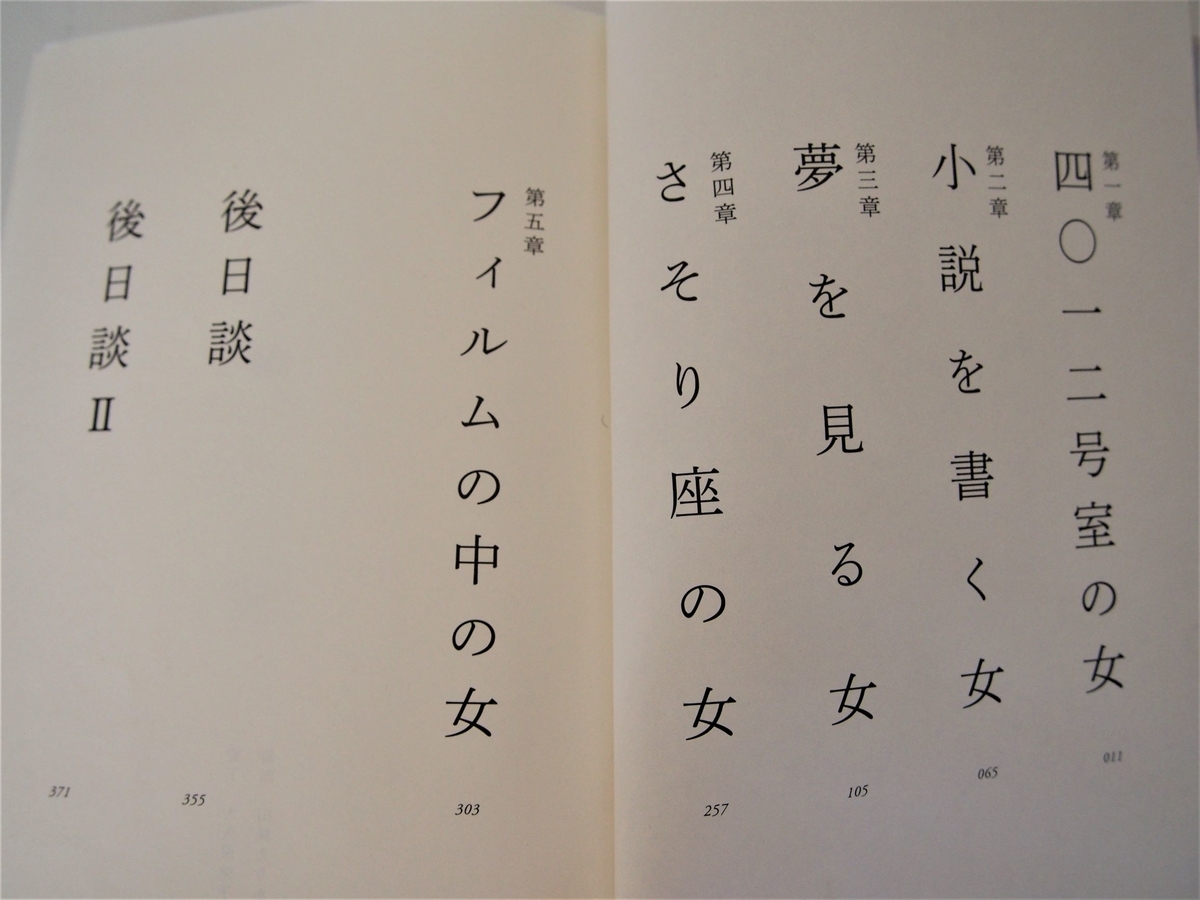 第一章
四〇一二号室の女
011
第二章
小説を書く女
065
第三章
夢を見る女
105
第四章
さそり座の女
257
第五章
フィルムの中の女
303
後日談
355
後日談Ⅱ
371